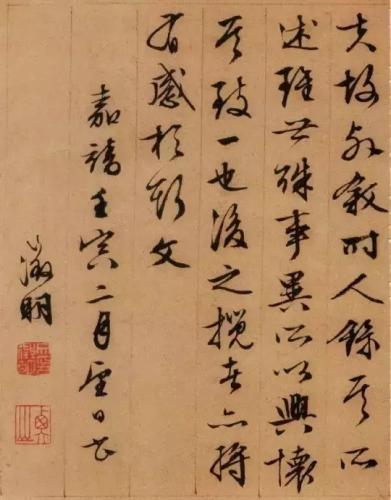 夫故列叙時人録其所
述雖世殊事異所以興懷
其致一也後之攬者亦將
有感於斯文
嘉靖壬寅二月望日書
徵明